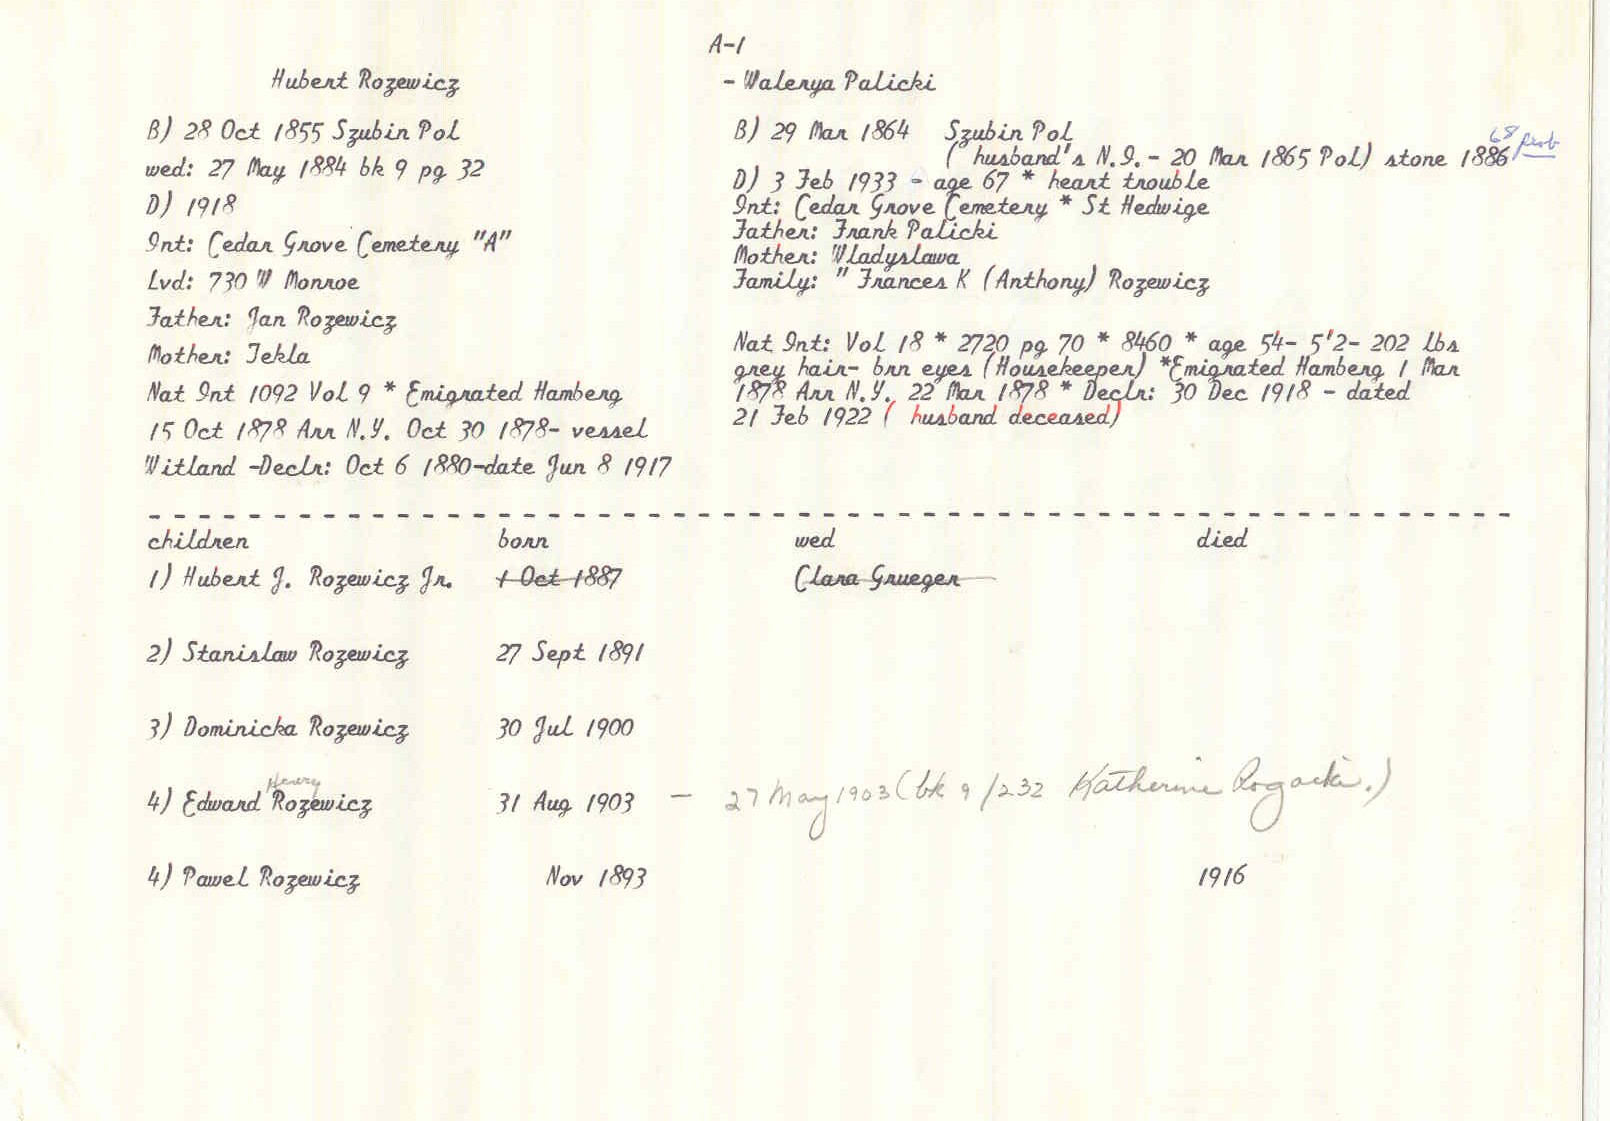 A-1
Hubert Rozewicz
- Walerya Palicki
B) 28 Oct 1855 Szubin Pol
wed: 27 May 1884 bk 9 pg 32
D) 1918
Int: Cedar Grove Cemetery "A"
Lvd: 730 W Monroe
Father: Jan Rozewicz
Mother: Tekla
Nat Int 1092 Vol 9 * Emigrated Hamberg
15 Oct 1878 Arr N.Y. Oct 30 1878- vessel
Witland -Declr: Oct 6 1880-date Jun 8 1917
B) 29 Mar 1864 Szubin Pol
68 prob
( husband's N.I.- 20 Mar 1865 Pol) stone 1886
D) 3 Feb 1933 - age 67 * heart trouble
Int: Cedar Grove Cemetery * St Hedwige
Father: Frank Palicki
Mother: Wladyslawa
Family: " Frances K (Anthony) Rozewicz
Nat Int: Vol 18 * 2720 pg 70 * 8460 * age 54- 5'2- 202 lbs
grey hair- brn eyes (Housekeeper) *Emigrated Hamberg 1 Mar
1878 Arr N.Y. 22 Mar 1878 * Declr: 30 Dec 1918 - dated
21 Feb 1922 ( husband deceased)
children born wed died
1) Hubert J. Rozewicz Jr. 1 Oct 1887 Clara Grueger
2) Stanislaw Rozewicz 27 Sept 1891
3) Dominicka Rozewicz 30 Jul 1900
Henry
4) Edward Rozewicz 31 Aug 1903 - 27 May 1903 (bk 9/232 Katherine Rogacki.)
4) Pawel Rozewicz Nov 1893 1916